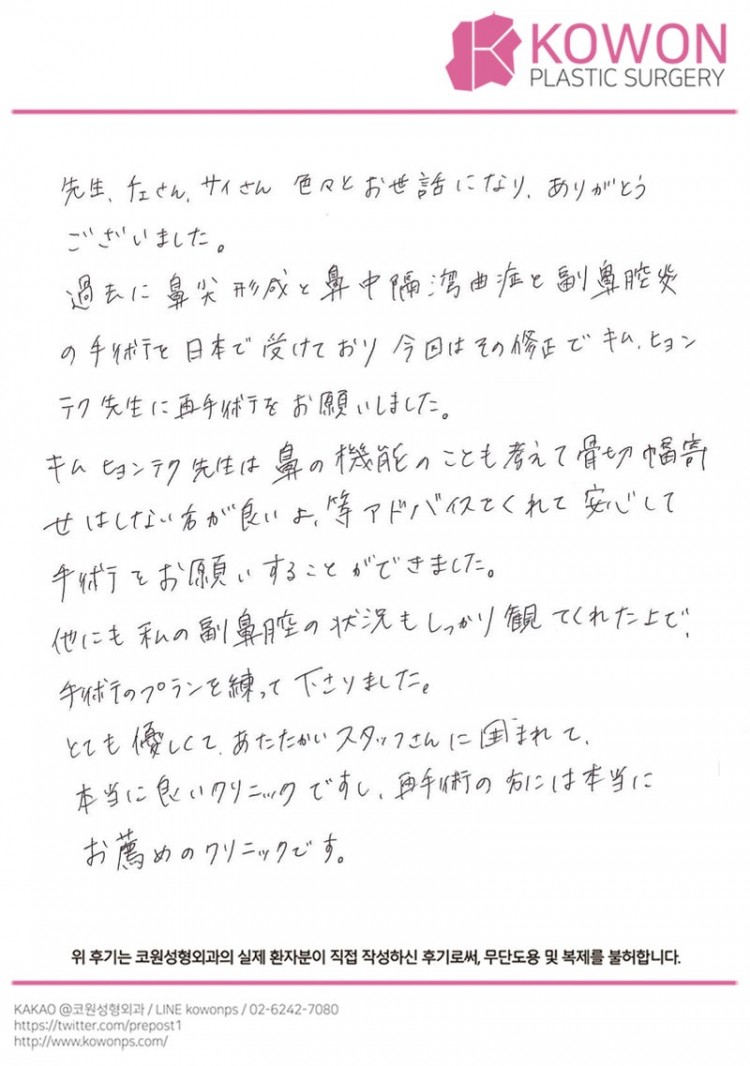 KOWON
PLASTIC SURGERY
先生、チェさん、サイさん 色々とお世話になり、ありがとう
ございました。
過去に鼻尖形成と鼻中隔湾曲症と副鼻腔炎
の手術を日本で受けており今回はその修正でキム、ヒョン
テク先生に再手術をお願いしました。
キムヒョンテク先生は鼻の機能のことも考えて骨切幅寄
せはしない方が良いよ、等アドバイスてくれて安心して
手術をお願いすることができました。
他にも私の副鼻腔の状況もしっかり観てくれた上で、
手術のプランを練って下さりました。
とても優しくて、あたたかいスタッフさんに囲まれて、
本当に良いクリニックですし、再手術の方には本当に
お薦めのクリニックです。
위 후기는 코원성형외과의 실제 환자분이 직접 작성하신 후기로써, 무단도용 및 복제를 불허합니다.
KAKAO @코원성형외과 / LINE kowonps / 02-6242-7080
https://twitter.com/prepost1
http://www.kowonps.com/